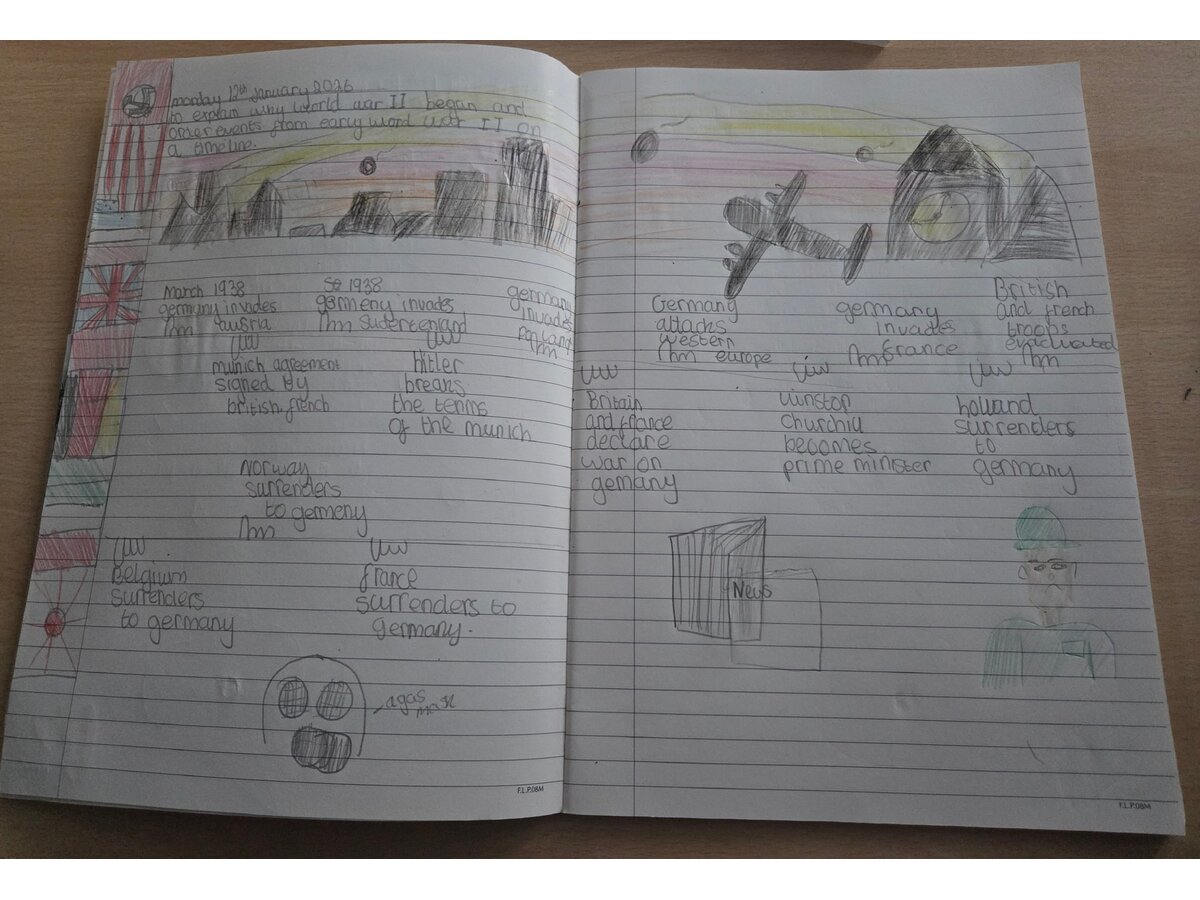 monday 12th January 2026
to explain why world war II began and
order events from early word war II on
a timeline.
March 1938
germany invades
austria
Se 1938
germeny invades
Sudertenland
germany
invades
munich agreement
signed by
british french
Hitler
breaks
the terms
of the munich
Norway
surrenders
to germeny
Belgium
Surrenders
to germany
france
surrenders to
germany.
agas
mask
F.L.P.08M
Germany
attacks
western
europe
germany
invades
france
British
and french
troops
evacuated
Britain
and france
declare
war on
gemany
winston
churchill
becomes
prime minister
holland
surrenders
to
germany
News
F.L.P.08M